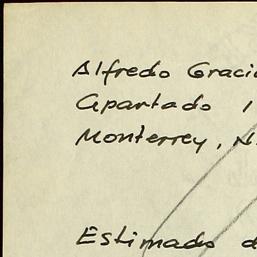 Alfredo Graci
Apartado 1
Monterrey, N.
Estimado d